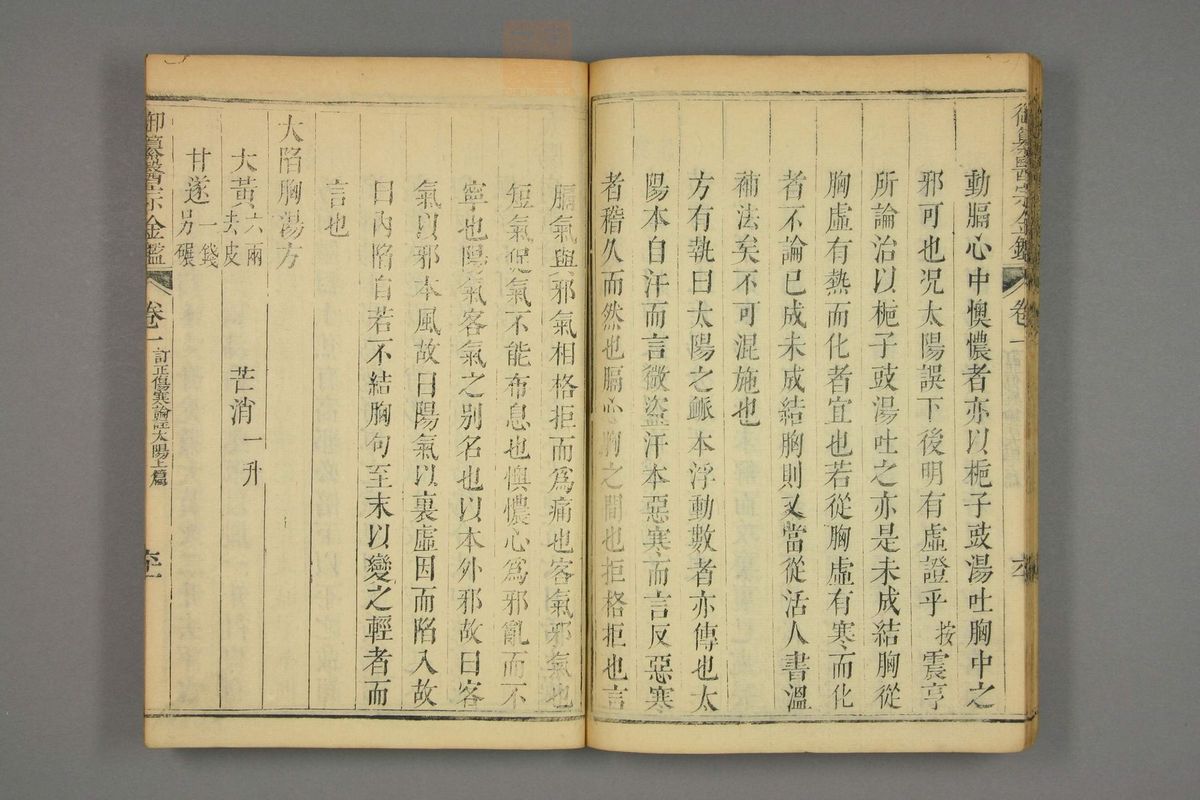 御纂醫宗金鑑 卷一
動膈心中懊憹者亦以梔子豉湯吐胸中之
邪可也况太陽誤下後明有虛證乎按震亨
所論治以梔子豉湯吐之亦是未成結胸從
胸虛有熱而化者宜也若從胸虛有寒而化
者不論已成未成結胸則又當從活人書溫
補法矣不可混施也
方有執曰太陽之脈本浮動數者亦傳也太
陽本自汗而言微盜汗本惡寒而言反惡寒
者稽久而然也膈心胸之間也拒格拒也言
膈氣與邪氣相格拒而爲痛也客氣邪氣也
短氣促氣不能布息也懊憹心爲邪亂而不
寧也陽氣客氣之別名也以本外邪故曰客
氣以邪本風故曰陽氣以裏虛因而陷入故
曰內陷自若不結胸句至末以變之輕者而
言也
大陷胸湯方
大黃六兩去皮 芒消一升
甘遂一錢另碾
御纂醫宗金鑑 卷一 訂正傷寒論註太陽上篇